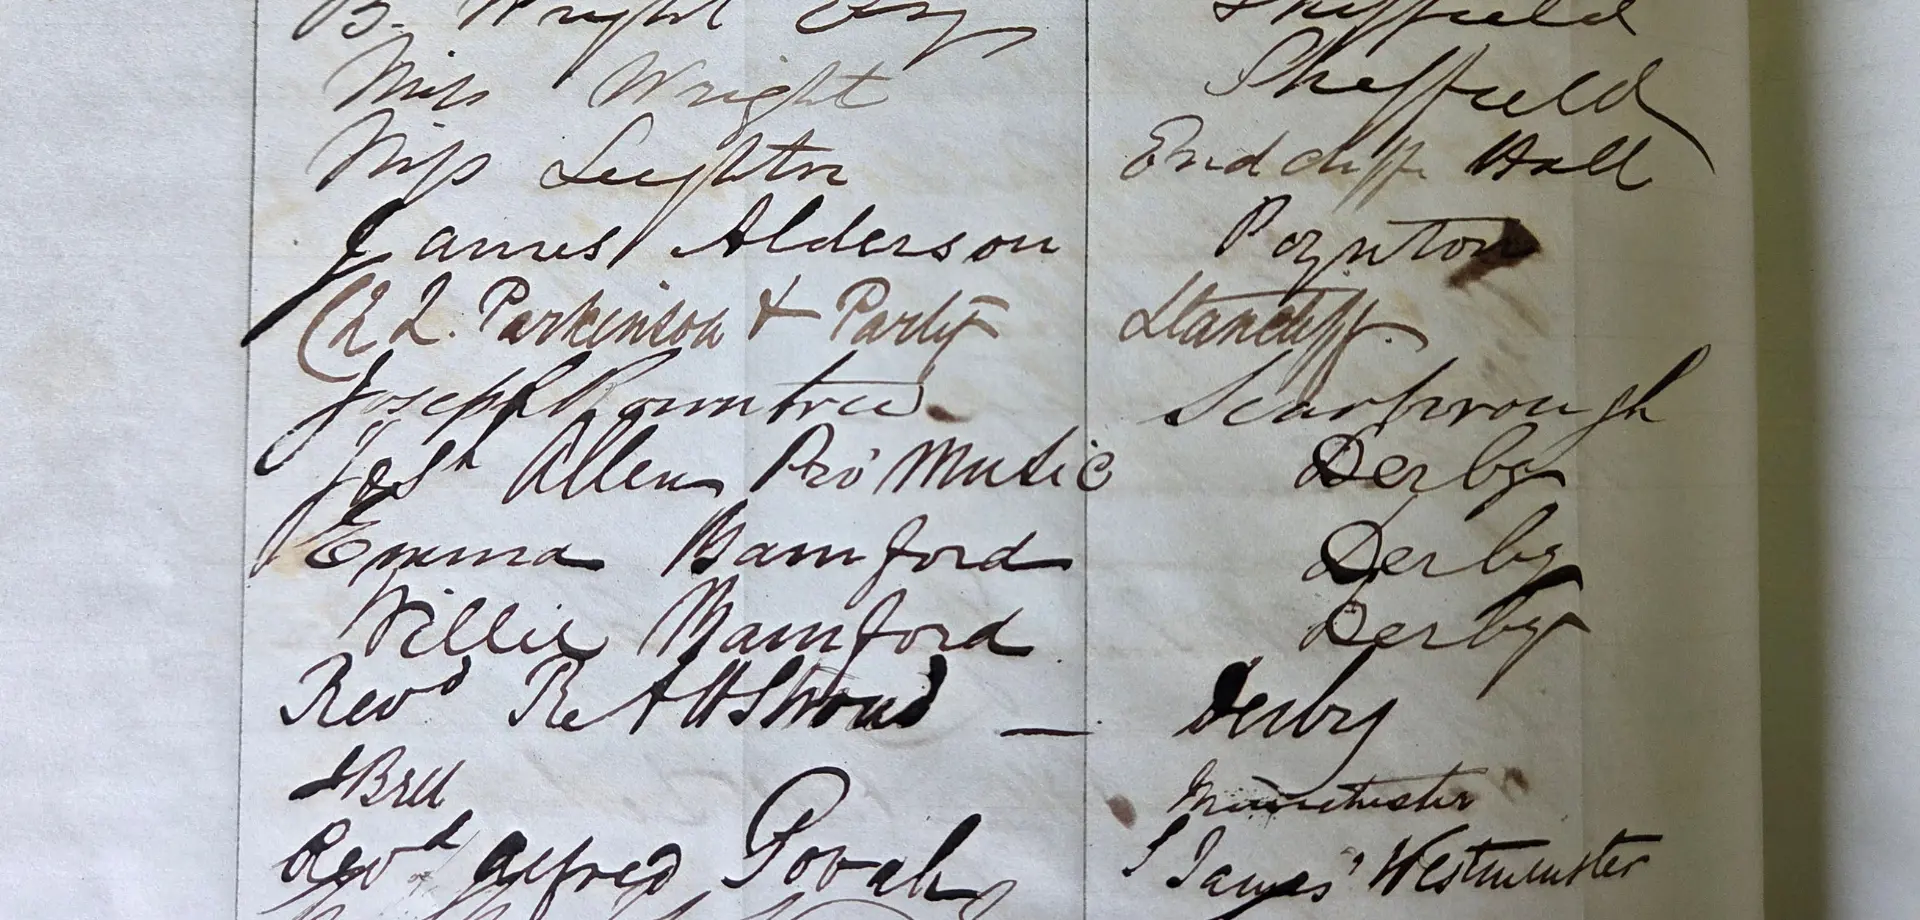 B. Wright Esq Sheffield
Miss Wright Sheffield
Miss Leighton Endcliffe Hall
James Alderson Poynton
Ch L. Parkinson & Party Stancliffe
Joseph Rowntree Scarbrough
Josh Allen Pro Music Derby
Emma Bamford Derby
Willie Bamford Derby
Revd Derby
J Bell Manchester
Revd Alfred Povah St James' Westminster